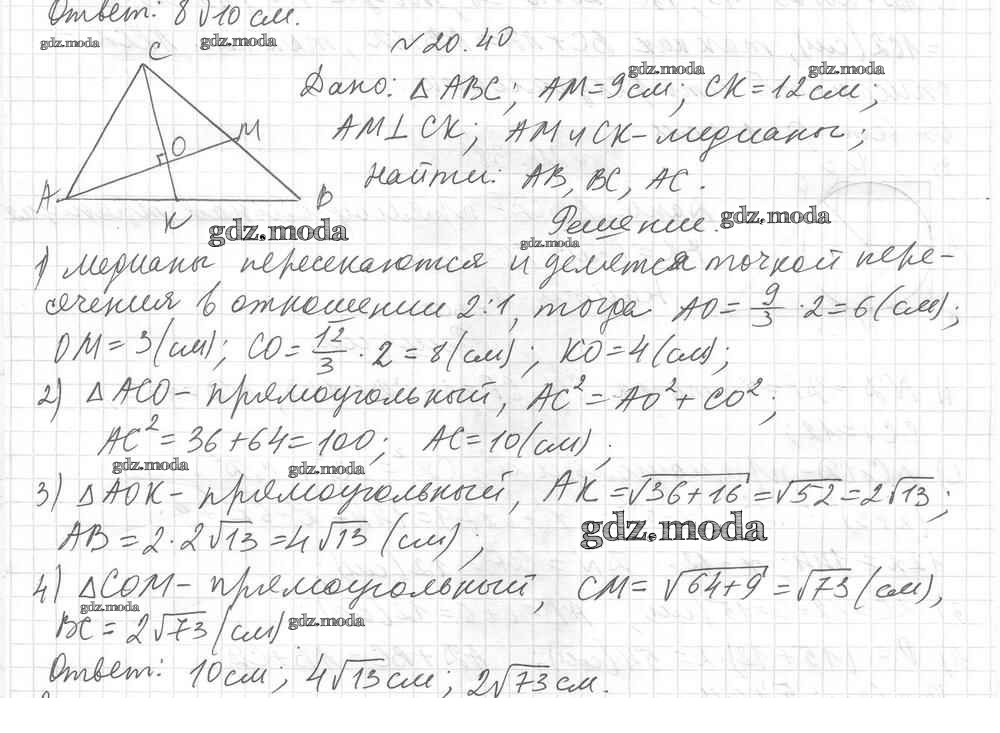 Ответ: 8√10 см.
gdz.moda gdz.moda
№20.40
C
M
O
A
K
B
gdz.moda gdz.moda
Дано: △ ABC; AM=9см; CK=12см;
AM⊥CK; AM и CK-медианы;
Найти: AB, BC, AC.
Решение.
gdz.moda gdz.moda gdz.moda
1) медианы пересекаются и делятся точкой пере-
сечения в отношении 2:1, тогда AO = 9/3 · 2 = 6 (см);
OM = 3 (см); CO = 12/3 · 2 = 8 (см); KO = 4 (см);
2) △ ACO - прямоугольный, AC² = AO² + CO²;
AC² = 36+64=100; AC=10 (см);
gdz.moda gdz.moda
3) △AOK - прямоугольный, AK = √36+16 = √52 = 2√13;
gdz.moda
AB = 2·2√13 = 4√13 (см);
4) △COM - прямоугольный, CM = √64+9 = √73 (см),
gdz.moda
BC = 2√73 (см) gdz.moda
Ответ: 10см; 4√13см; 2√73см.